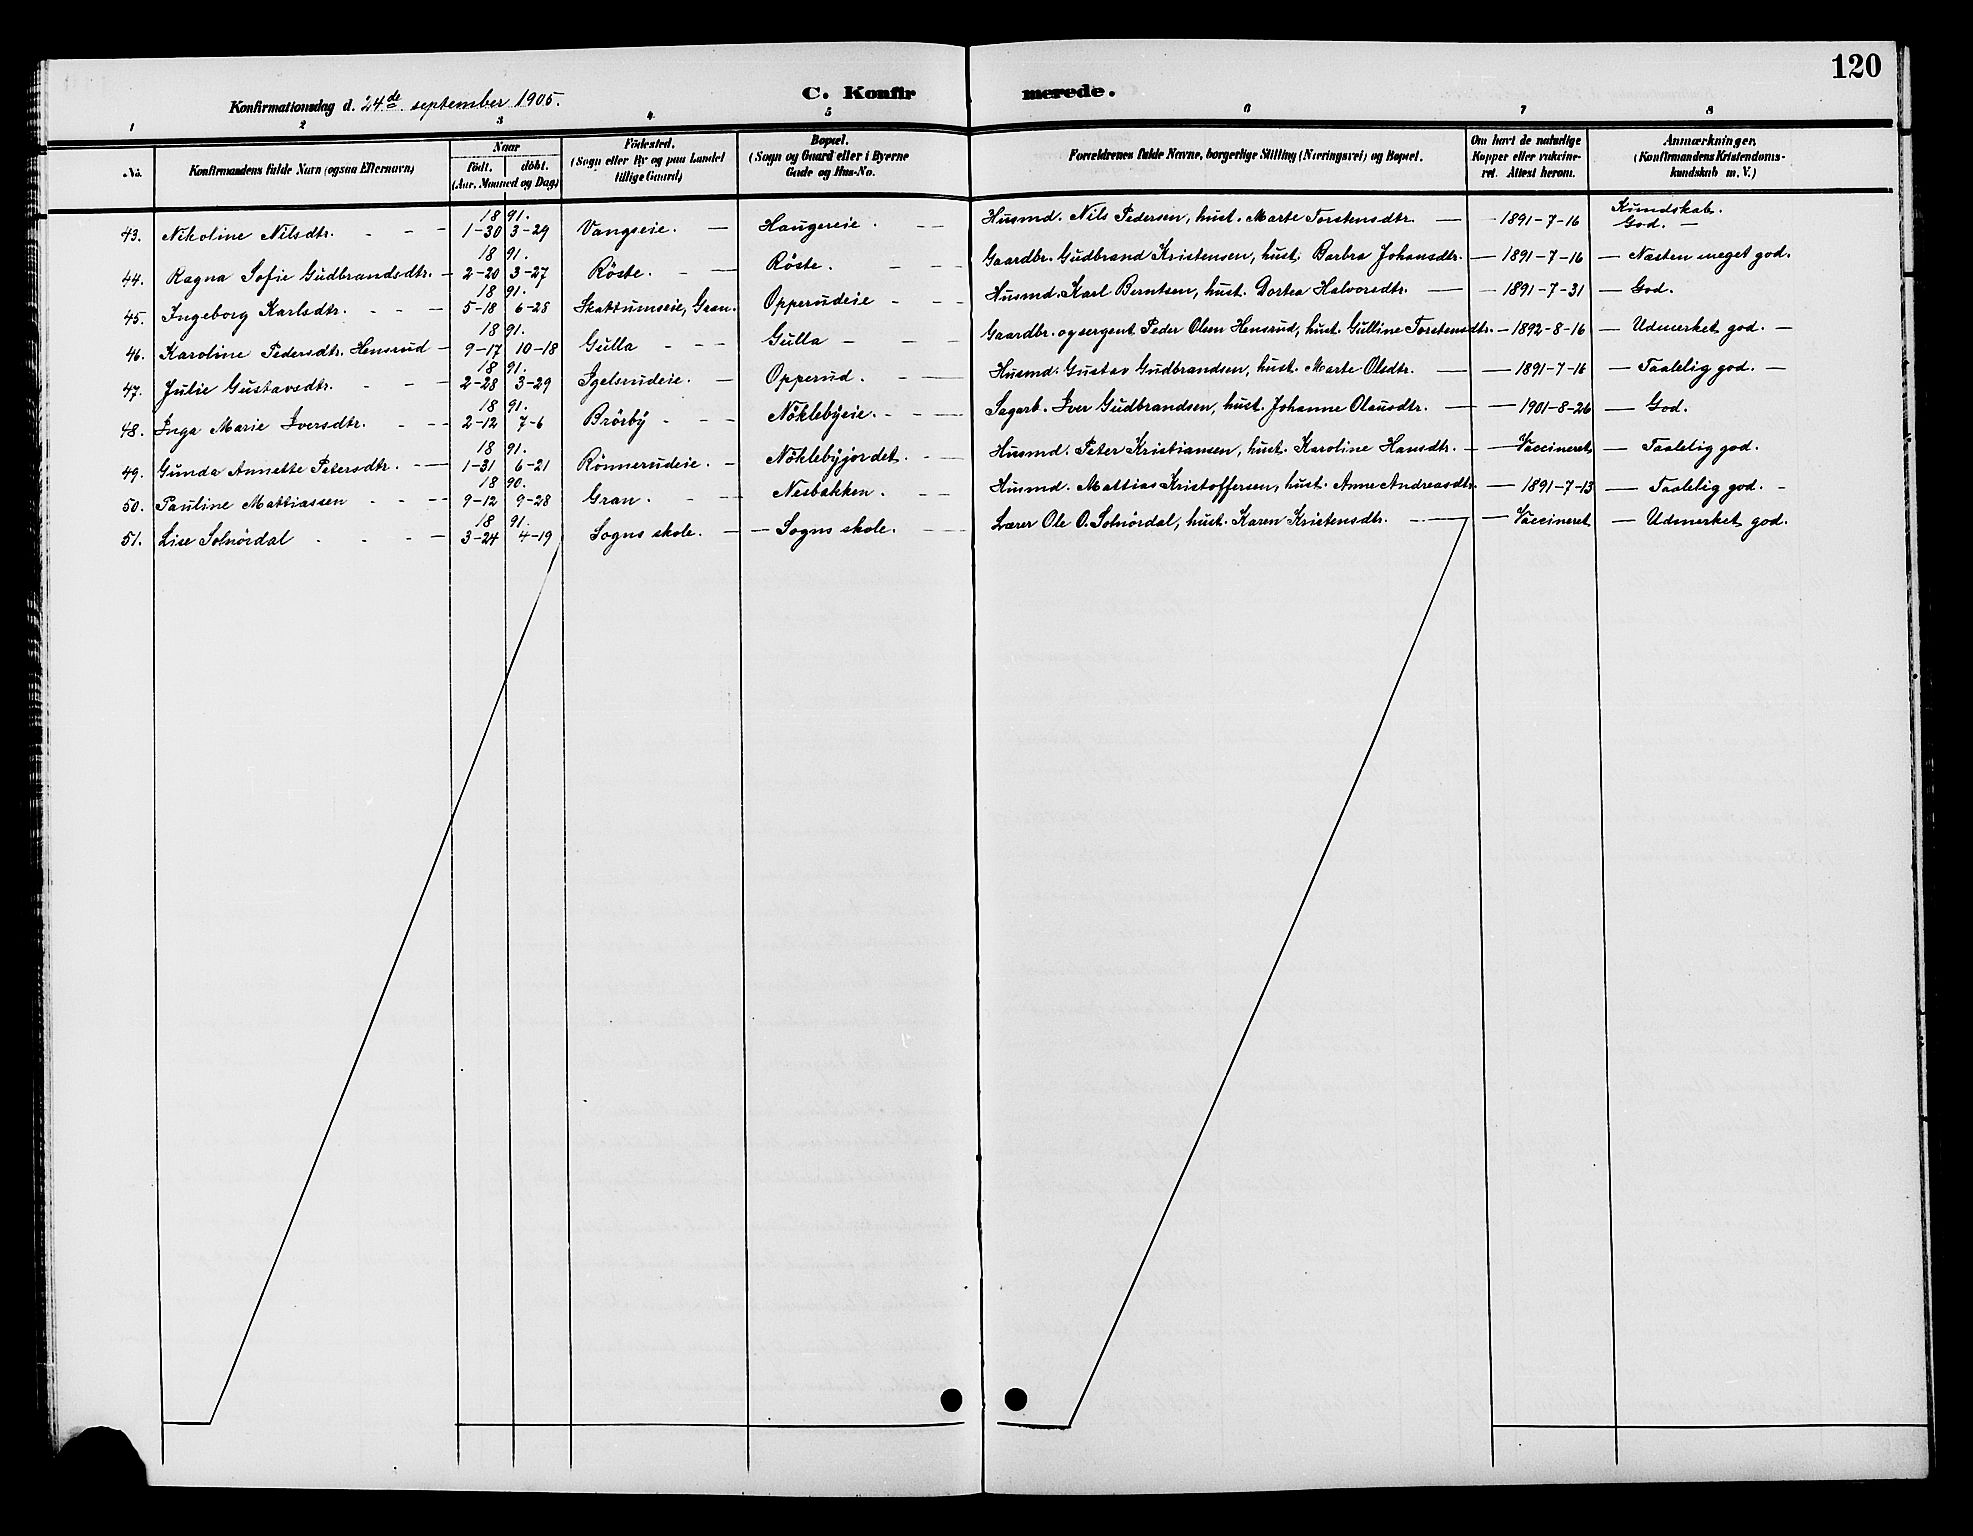 120
Konfirmationsdag d. 24de september 1905. C. Konfirmerede.
1 2 3 4 5 6 7 8
No. Konfirmandens fulde Navn (ogsaa Efternavn) Naar født. døbt. (Aar, Maaned og Dag) Fødested. (Sogn eller By og paa Landet tillige Gaard) Bopæl. (Sogn og Gaard eller i Byerne Gade og Hus-No. Forældrenes fulde Navne, borgerlige Stilling (Næringsvei) og Bopæl. Om havt de naturlige Kopper eller vakcineret. Attest herom. Anmærkninger. (Konfirmandens Kristendomskundskab m. V.)
Kundskab.
43. Nikoline Nilsdtr. 1891. 1-30 3-29 Vangseie. Haugereie. Husmd. Nils Pedersen, hust. Marte Torstensdtr. 1891-7-16 God.
44. Ragna Sofie Gudbrandsdtr. 1891. 2-20 3-27 Röste. Röste. Gaardbr. Gudbrand Kristensen, hust. Barbra Johansdtr. 1891-7-16 Næsten meget god.
45. Ingeborg Karlsdtr. 1891. 5-18 6-28 Skattumseie, Gran. Opperudeie Husmd. Karl Berntsen, hust. Dortea Halvorsdtr. 1891-7-31 God.
46. Karoline Pedersdtr. Hensrud 1891. 9-17 10-18 Gulla Gulla Gaardbr. og sergent Peder Olsen Hensrud, hust. Gulline Torstensdtr. 1892-8-16 Udmerket god.
47. Julie Gustavsdtr. 1891. 2-28 3-29 Igelsrudeie. Opperud. Husmd. Gustav Gudbrandsen, hust. Marte Olsdtr. 1891-7-16 Taalelig god.
48. Inga Marie Iversdtr. 1891. 2-12 7-6 Brörby Nöklebyeie. Sagarb. Iver Gudbrandsen, hust. Johanne Olausdtr. 1901-8-26 God.
49. Gunda Annette Petersdtr. 1891. 1-31 6-21 Rönnerudeie. Nöklebyjordet. Husmd. Peter Kristiansen, hust. Karoline Hansdtr. Vaccineret Taalelig god.
50. Pauline Mattiassen 1890. 9-12 9-28 Gran. Nesbakken. Husmd. Mattias Kristoffersen, hust. Anne Andreasdtr. 1891-7-13 Taalelig god.
51. Lise Solnördal 1891. 3-24 4-19 Sogns skole. Sogns skole. Lærer Ole O. Solnördal, hust. Karen Kristensdtr. Vaccineret Udmerket god.